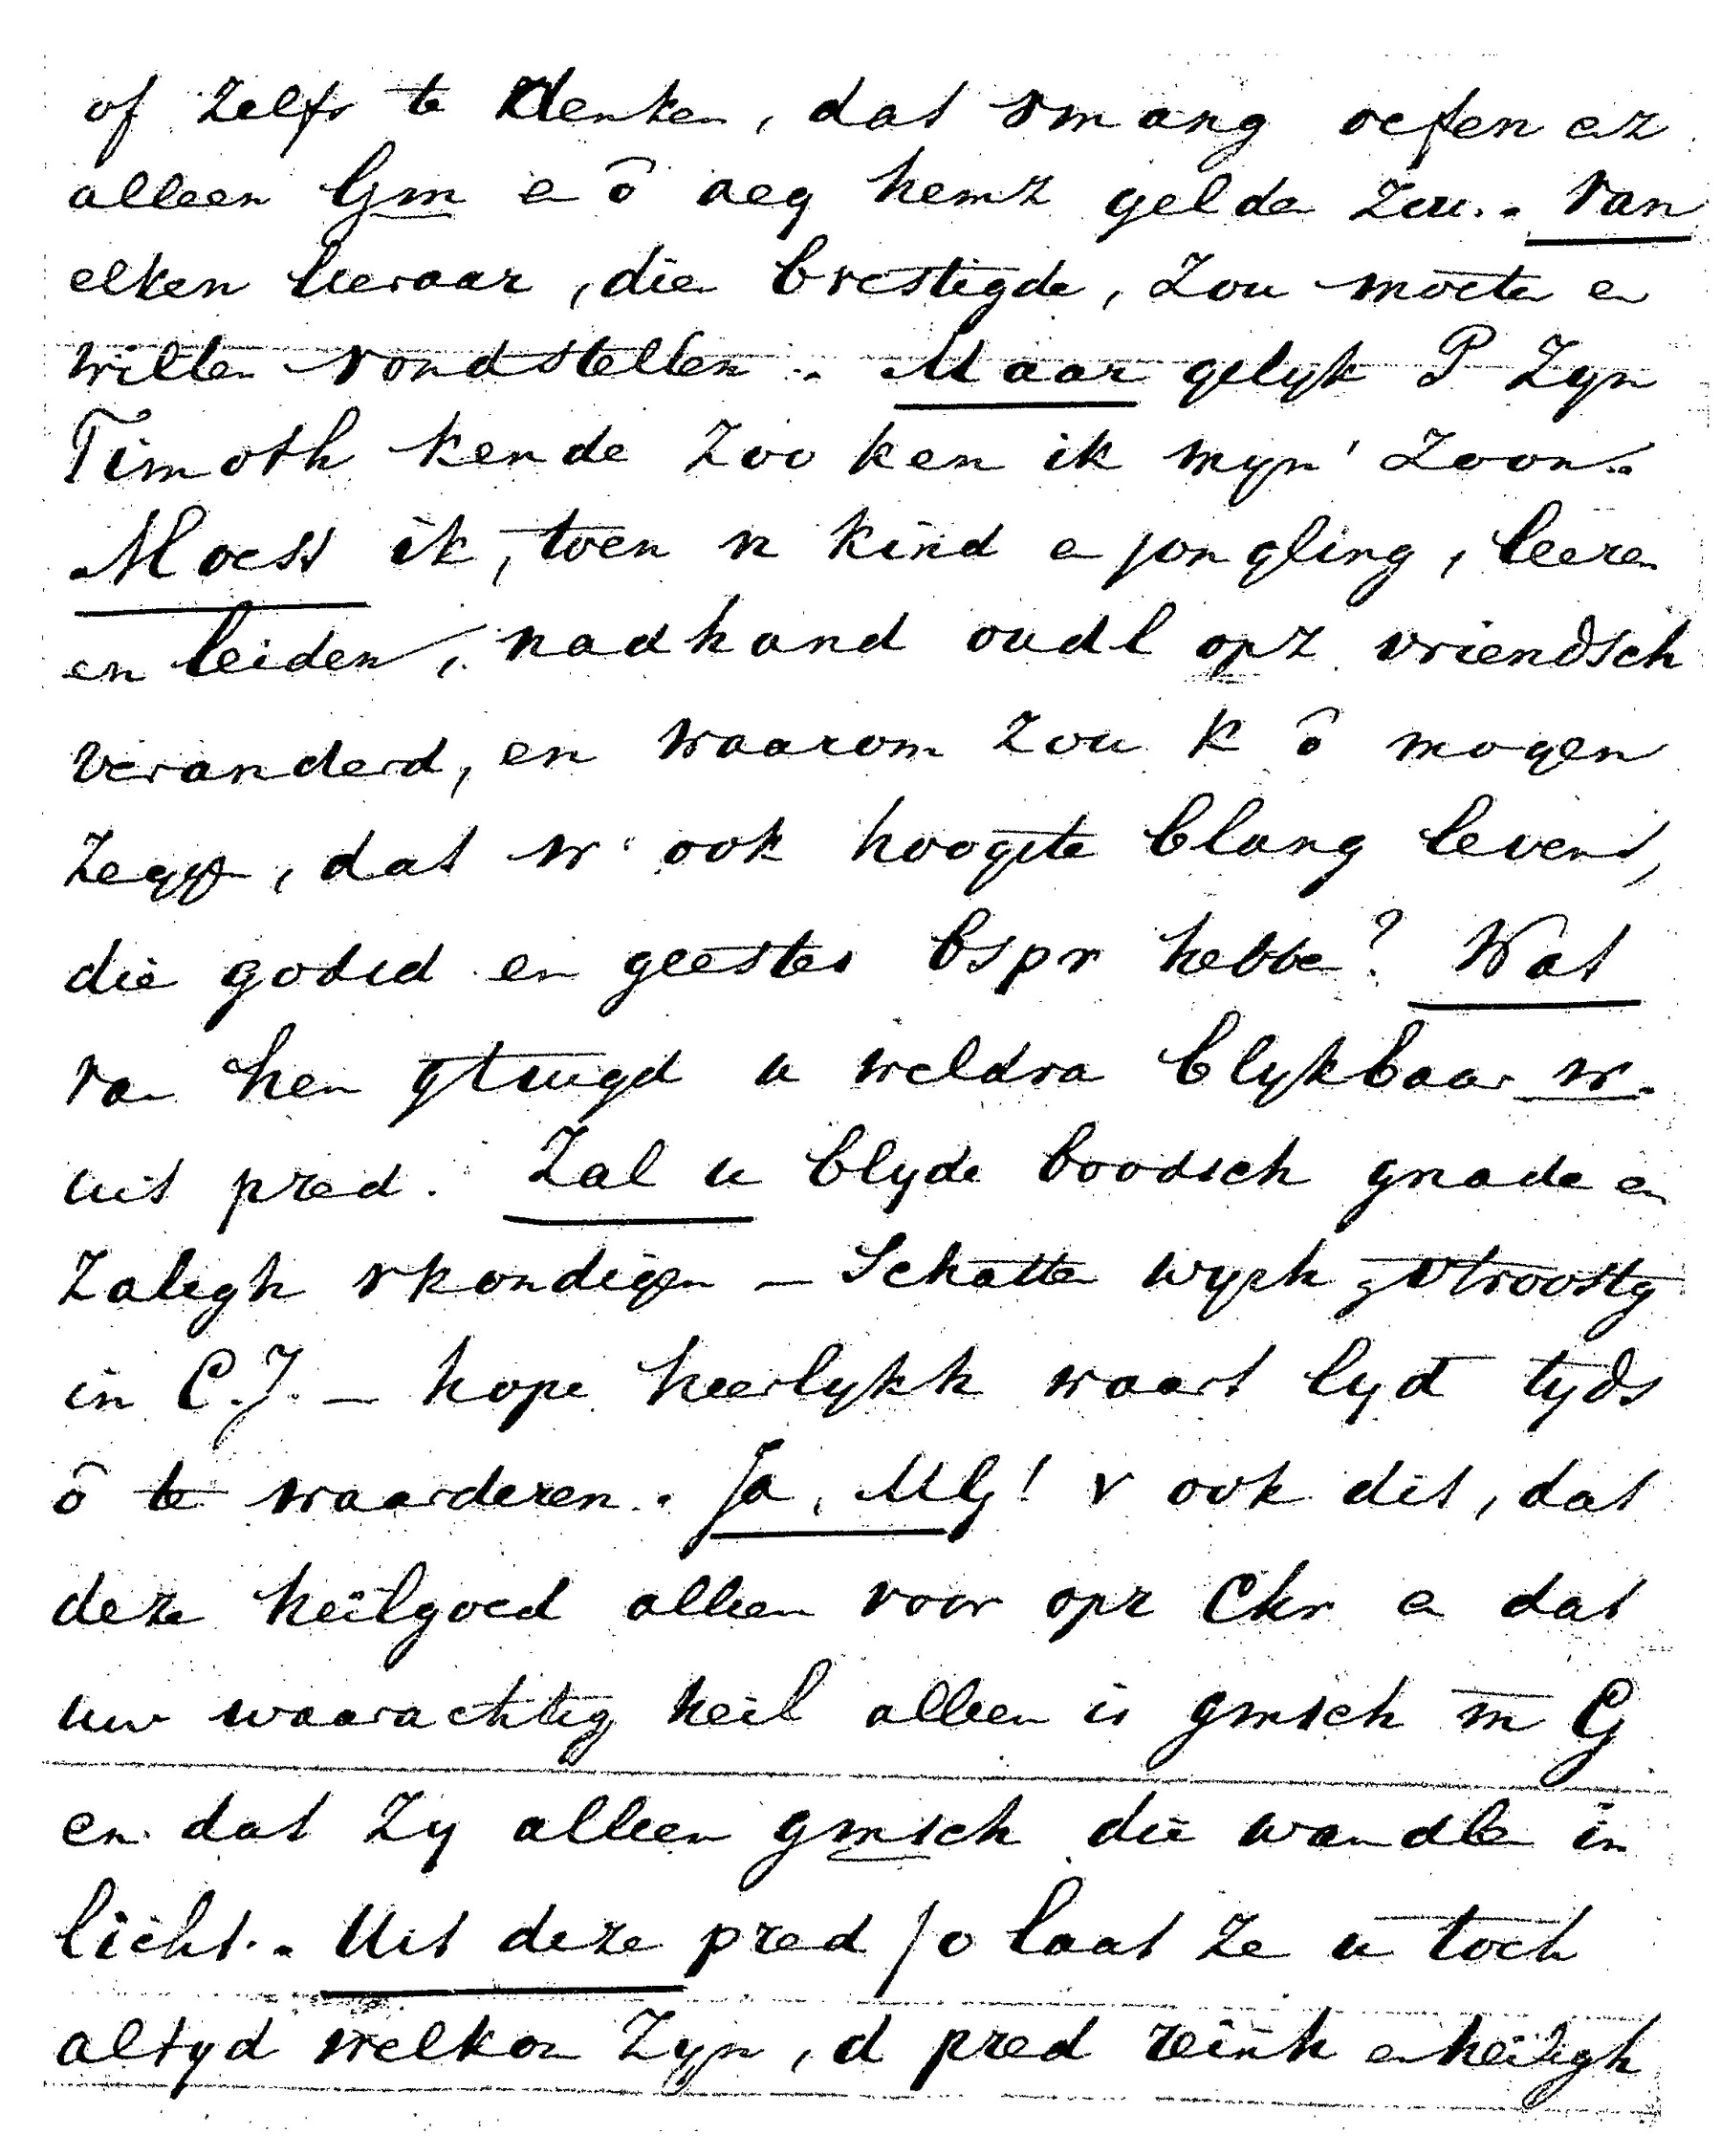 of zelfs te denken, dat vmang oefen ez
alleen Gm e ô aeg hemz gelde zou. Van
elken leeraar, dien bvestigde, zou moete en
willen vondstellen. Maar gelyk P zyn
Timoth kende zoo ken ik myn' zoon.
Moest ik, toen n kind e jongling, leeren
en leiden, nadhand oudl opz vriendsch
veranderd, en waarom zou k ô mogen
zeggen, dat w ook hoogste blang levens,
die godsd en geestes bspr hebbe? Wat
van hen gtuigd u weldra blykbaar w.
uit pred. Zal u blyde boodsch gnade en
zaligh vkondigen – Schatten wysh vtroostg
in C.J. – hope heerlykh waart lyd tyds
ô te waarderen. Ja, MG! v ook dit, dat
deze heilgoed alleen voor opr Chr e dat
uw waarachtig heil alleen is gmsch m G
en dat zy alleen gmsch die wandle in
licht. Uit deze pred / o laat ze u toch
altyd welkom zyn, d pred reinh en heiligh